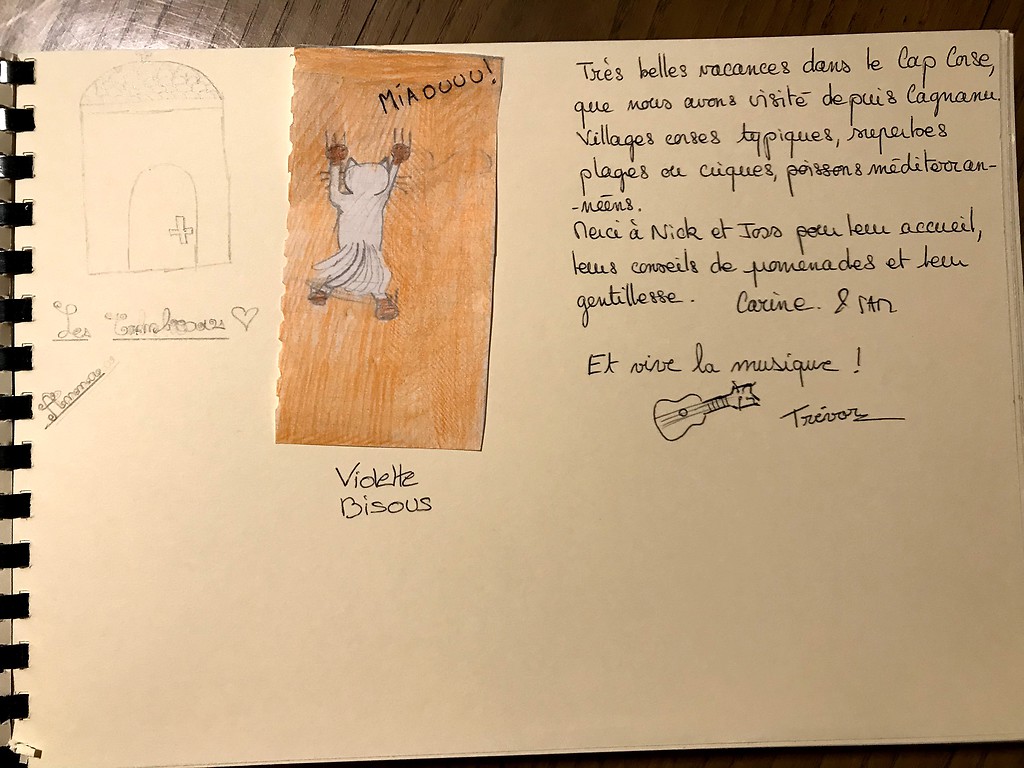 Les Tombeaux
MIAOUUU!
Violette
Bisous
Très belles vacances dans le Cap Corse,
que nous avons visité depuis Cagnanu.
Villages corses typiques, superbes
plages ou criques, poissons méditerran-
-néens.
Merci à Nick et Joss pour leur accueil,
leurs conseils de promenades et leur
gentillesse. Carine. &
Et vive la musique !
Trévor